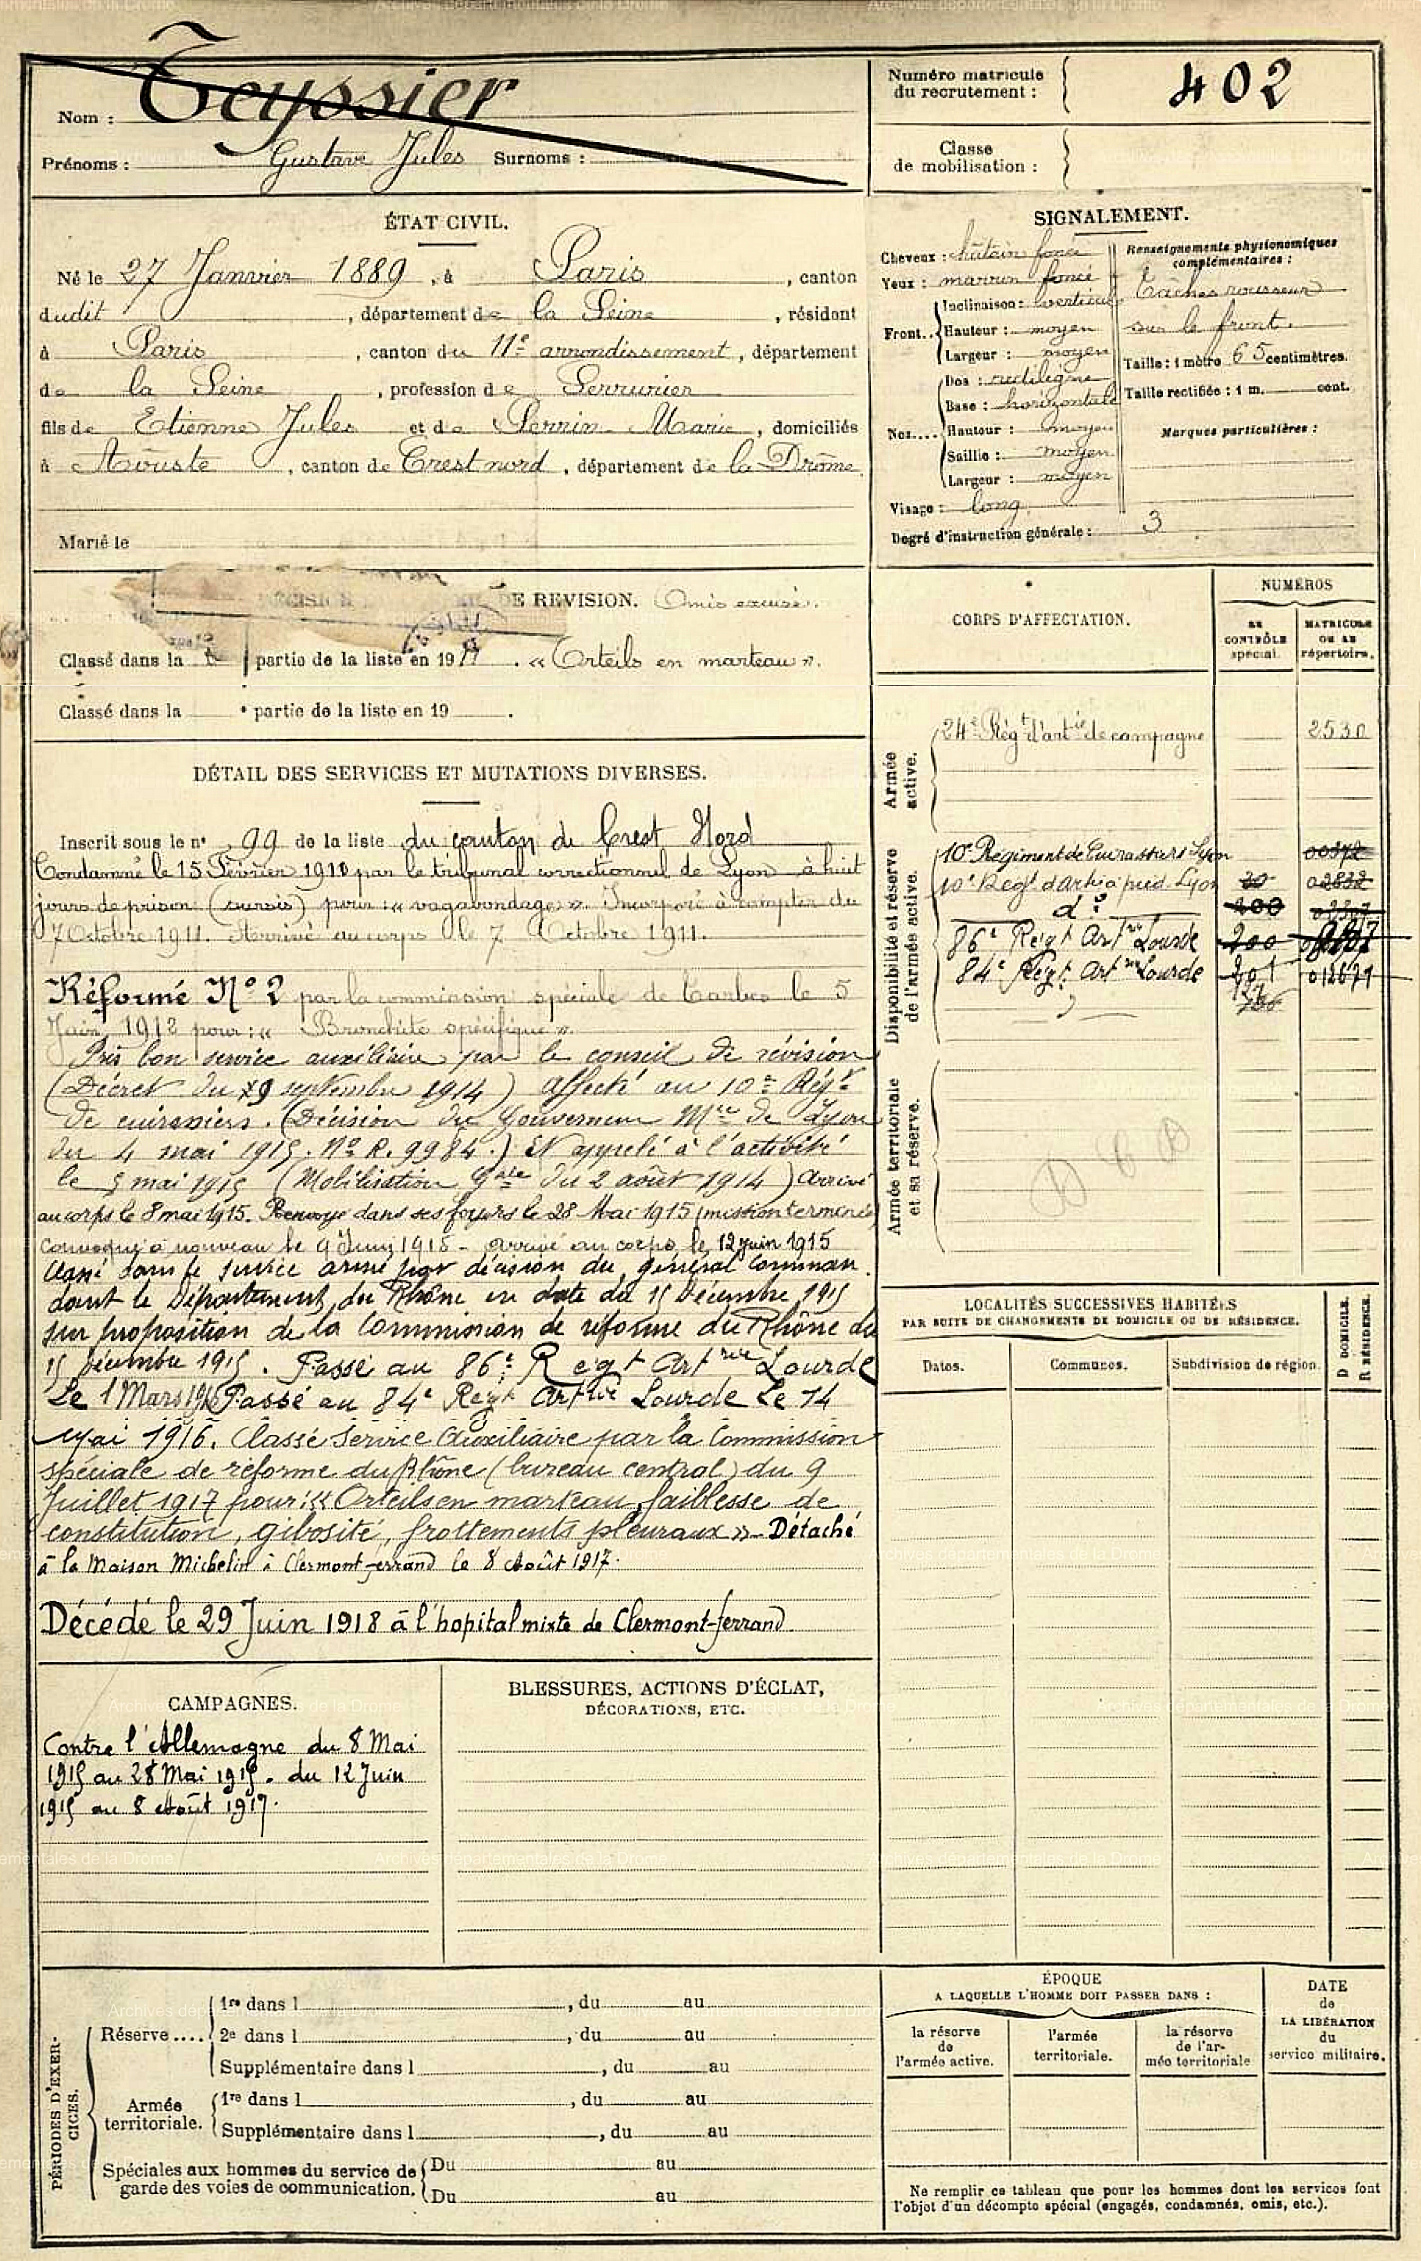 Nom : Teyssier
Prénoms : Gustave Jules Surnoms :
Numéro matricule
du recrutement :
402
Classe
de mobilisation :
ÉTAT CIVIL.
Né le 27 Janvier 1889, à Paris, canton
dudit, département de la Seine, résidant
à Paris, canton du 11e arrondissement, département
de la Seine, profession de Serrurier
fils de Etienne Jules et de Perrin Marie, domiciliés
à Aouste, canton de Crest nord, département de la Drôme
Marié le
SIGNALEMENT.
Cheveux : châtain foncé
Yeux : marron foncé
Front.. Inclinaison : verticale
Hauteur : moyen
Largeur : moyen
Nez.... Dos : rectiligne
Base : horizontale
Hauteur : moyen
Saillie : moyen
Largeur : moyen
Visage : long
Degré d'instruction générale : 3
Renseignements physionomiques
complémentaires :
Taches rousseur
sur le front.
Taille : 1 mètre 65 centimètres.
Taille rectifiée : 1 m. cent.
Marques particulières :
DE REVISION. Omis excusé.
Classé dans la partie de la liste en 19 . « Orteils en marteau ».
Classé dans la partie de la liste en 19 .
DÉTAIL DES SERVICES ET MUTATIONS DIVERSES.
Inscrit sous le n° 99 de la liste du canton de Crest Nord
Condamné le 15 Février 1910 par le tribunal correctionnel de Lyon à huit
jours de prison (sursis) pour : « vagabondage ». Incorporé à compter du
7 Octobre 1911. Arrivé au corps le 7 Octobre 1911.
Réformé N° 2 par la commission spéciale de Tarbes le 5
Juin 1912 pour : « Bronchite spécifique ».
Pris bon service auxiliaire par le conseil de révision
(Décret du 9 septembre 1914) affecté au 10e Régt
de cuirassiers. (Décision du Gouverneur Mre de Lyon
du 4 mai 1915. N° R. 9984.) Et appelé à l'activité
le 5 mai 1915 (Mobilisation Gale du 2 août 1914) Arrivé
au corps le 8 mai 1915. Renvoyé dans ses foyers le 28 Mai 1915 (mission terminée)
Convoqué à nouveau le 9 Juin 1915 - arrivé au corps le 12 juin 1915
Classé dans le service armé par décision du général comman
dant le Département du Rhône en date du 15 Décembre 1915
sur proposition de la Commission de réforme du Rhône du
15 décembre 1915. Passé au 86e Regt Artrie Lourde
Le 1 Mars 1916 Passé au 84e Regt Artrie Lourde Le 14
Mai 1916. Classé Service Auxiliaire par la Commission
spéciale de réforme du Rhône (bureau central) du 9
Juillet 1917 pour : « Orteils en marteau, faiblesse de
constitution, gibosité, frottements pleuraux » - Détaché
à la Maison Michelin à Clermont-ferrand le 8 Août 1917.
Décédé le 29 Juin 1918 à l'hopital mixte de Clermont-ferrand.
CORPS D'AFFECTATION.
NUMÉROS
AU
CONTRÔLE
spécial.
MATRICULE
OU AU
répertoire.
Armée
active.
24e Régt d'artie de campagne 2530
Disponibilité et réserve
de l'armée active.
10e Régiment de Cuirassiers Lyon 00372
10e Regt d'artie à pied Lyon 30 02832
d° 200
86e Regt Artrie Lourde 200
84e Regt Artrie Lourde 201
Armée territoriale
et sa réserve.
D C D
LOCALITÉS SUCCESSIVES HABITÉES
PAR SUITE DE CHANGEMENTS DE DOMICILE OU DE RÉSIDENCE.
Dates.
Communes.
Subdivision de région.
D DOMICILE.
R RÉSIDENCE.
CAMPAGNES.
Contre l'Allemagne du 8 Mai
1915 au 28 Mai 1915. du 12 Juin
1915 au 8 Août 1917.
BLESSURES, ACTIONS D'ÉCLAT,
DÉCORATIONS, ETC.
PÉRIODES D'EXER-
CICES.
Réserve.... 1re dans l , du au
2e dans l , du au
Supplémentaire dans l , du au
Armée
territoriale.
1re dans l , du au
Supplémentaire dans l , du au
Spéciales aux hommes du service de
garde des voies de communication.
Du au
Du au
ÉPOQUE
A LAQUELLE L'HOMME DOIT PASSER DANS :
la réserve
de
l'armée active.
l'armée
territoriale.
la réserve
de l'ar-
mée territoriale
DATE
de
LA LIBÉRATION
du
service militaire.
Ne remplir ce tableau que pour les hommes dont les services font
l'objet d'un décompte spécial (engagés, condamnés, omis, etc.).
Archives départementales de la Drôme